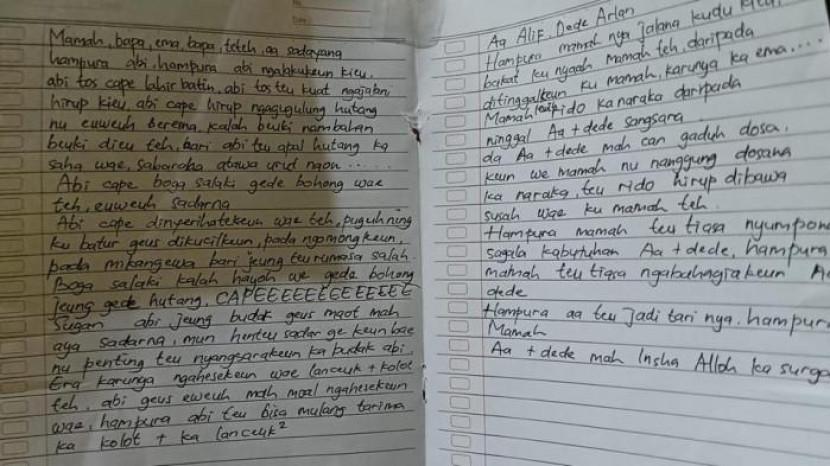 Mamah, bapa, ema, bapa, teteh, aa sadayana
hampura abi, hampura abi ngalakukeun kieu.
abi tos cape lahir batin, abi tos teu kuat ngajalani
hirup kieu, abi cape hirup ngagugulung hutang
nu euweuh berema, kalah beuki nambahan
beuki dieu teh, bari abi teu apal hutang ka
saha wae, sabaraha atawa urid naon ......
Abi cape boga salaki gede bohong wae
teh, euweuh sadarna
Abi cape dinyerihatekeun wae teh, puguh ning
ku batur geus dikucilkeun, pada ngomongkeun,
pada mikangewa bari jeung teu rumasa salah.
Boga salaki kalah hayoh we gede bohong
jeung gede hutang, CAPEEEEEEEEEEEEE
Sugan abi jeung budak geus maot mah
aya sadarna, mun henteu sadar ge keun bae
nu penting teu nyangsarakeun ka budak abi.
Era karunya ngahesekeun wae lanceuk + kolot
teh, abi geus eweuh mah moal ngahesekeun
wae, hampura abi teu bisa mulang tarima
ka kolot + ka lanceuk²
Aa Alif, Dede Arlan
Hampura mamah nya jalana kudu
bakat ku nyaah mamah teh, daripada
ditinggalkeun ku mamah, karunya ka ema....
Mamah rido ka naraka daripada
ninggal Aa + dede sangsara
da Aa + dede mah can gaduh dosa,
keun we mamah nu nanggung dosana
ka naraka, teu rido hirup dibawa
susah wae ku mamah teh.
Hampura mamah teu tiasa
sagala kabutuhan Aa + dede, hampura
mamah teu tiasa ngabahagiakeun
dede
Hampura aa teu jadi tari nya. hampura
Mamah
Aa + dede mah Insha Alloh ka surga